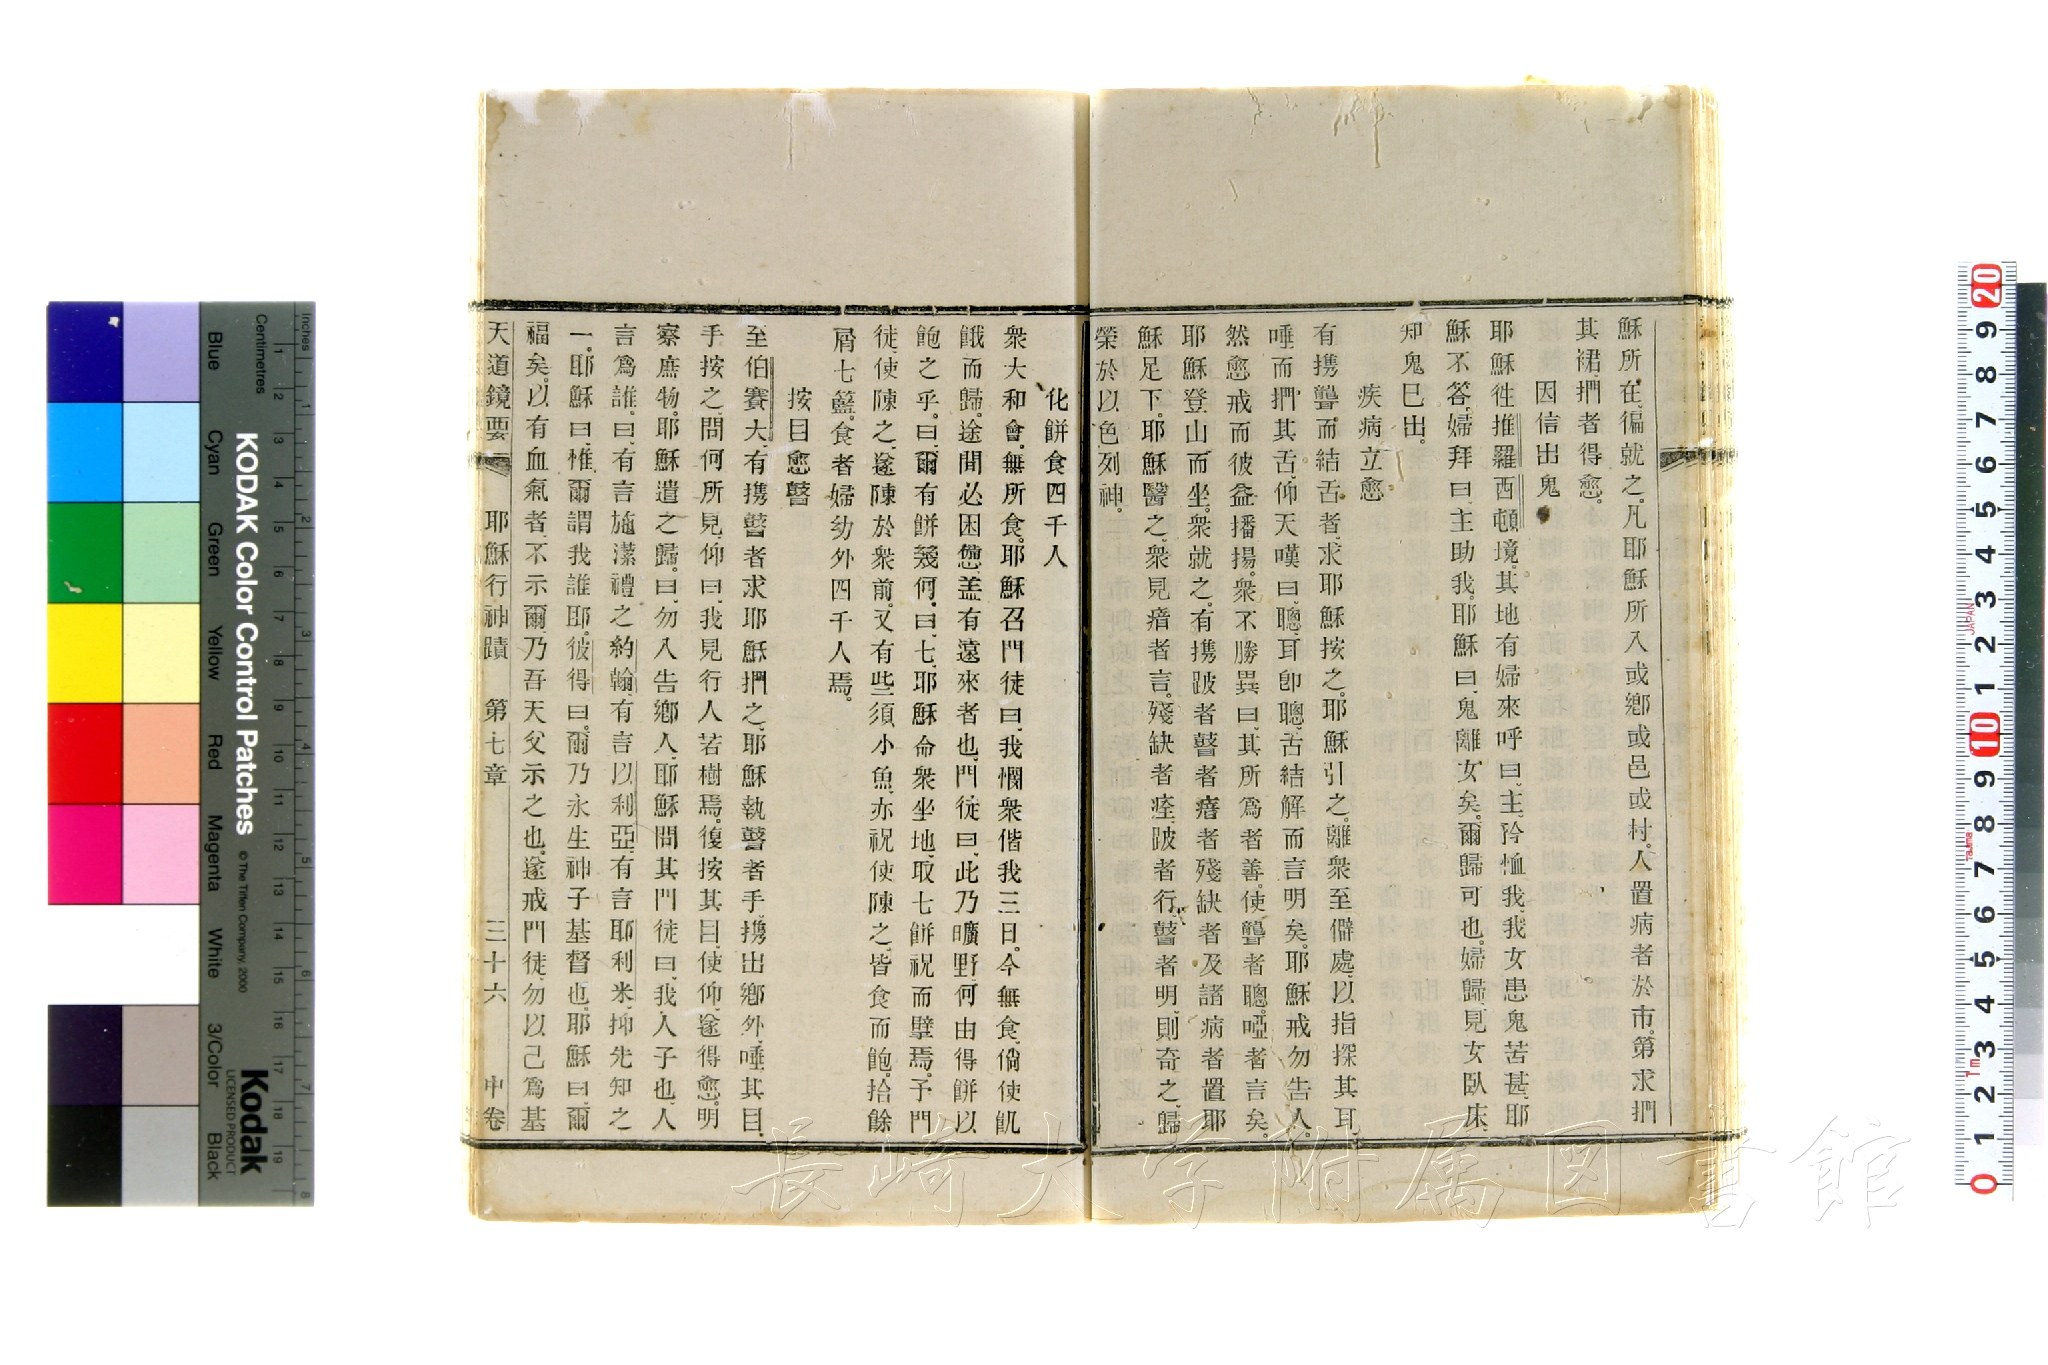 穌所在、徧就之。凡耶穌所入或鄕或邑或村、人置病者於市、第求捫
其裙、捫者得愈。
因信出鬼
耶穌徃推羅西頓境。其地有婦來呼曰、主、矜恤我、我女患鬼苦甚、耶
穌不答、婦拜曰、主助我。耶穌曰、鬼離女矣。爾歸可也。婦歸、見女臥床、
知鬼已出。
疾病立愈
有携聾而結舌者、求耶穌按之。耶穌引之、離衆至僻處、以指探其耳、
唾而捫其舌、仰天嘆曰、聰、耳卽聰、舌結解而言明矣。耶穌戒勿告人、
然愈戒而彼益播揚。衆不勝異曰、其所爲者善、使聾者聰、啞者言矣。
耶穌登山而坐。衆就之。有携跛者瞽者瘖者殘缺者及諸病者置耶
穌足下、耶穌醫之、衆見瘖者言。殘缺者痊、跛者行、瞽者明、則奇之、歸
榮於以色列神。
化餅食四千人
衆大和會。無所食。耶穌召門徒曰、我憫衆偕我三日。今無食、倘使飢
餓而歸。途間必困憊、盖有遠來者也。門徒曰、此乃曠野何由得餅以
飽之乎。曰、爾有餅幾何。曰、七、耶穌命衆坐地、取七餅祝而擘焉。予門
徒、使陳之、遂陳於衆前。又有些須小魚、亦祝使陳之、皆食而飽。拾餘
屑七籃。食者婦幼外四千人焉。
按目愈瞽
至伯賽大、有携瞽者求耶穌捫之、耶穌執瞽者手、携出鄕外、唾其目、
手按之、問何所見、仰曰、我見行人若樹焉。復按其目、使仰、遂得愈。明
察庶物。耶穌遣之歸。曰、勿入告鄕人、耶穌問其門徒曰、我人子也、人
言爲誰、曰、有言施潔禮之約翰、有言以利亞、有言耶利米、抑先知之
一。耶穌曰、惟爾謂我誰耶。彼得曰。爾乃永生神子基督也。耶穌曰、爾
福矣。以有血氣者、不示爾、乃吾天父示之也。遂戒門徒、勿以己爲基
天道鏡要 耶穌行神蹟 第七章 三十六 中卷
KODAK Color Control Patches
© The Tiffen Company, 2000
Kodak
LICENSED PRODUCT
Inches
Centimetres
Blue Cyan Green Yellow Red Magenta White 3/Color Black
長崎大学附属図書館